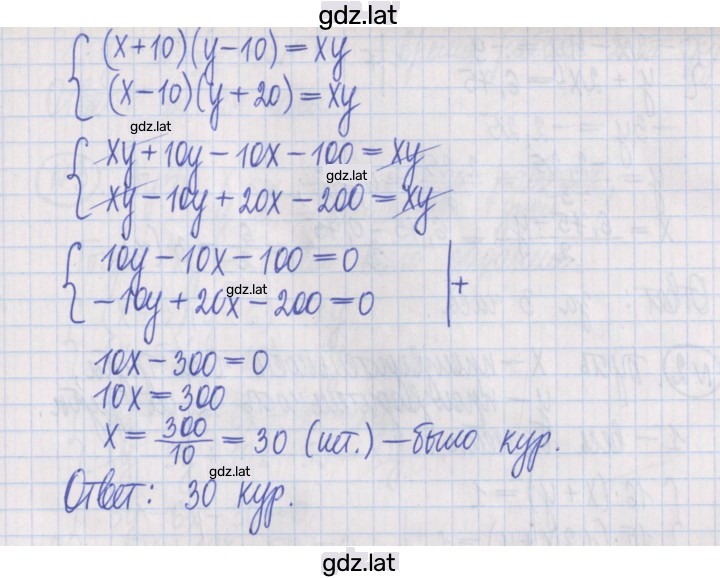 gdz.lat
(x+10)(y-10)=xy
(x-10)(y+20)=xy
gdz.lat
xy+10y-10x-100=xy
gdz.lat
xy-10y+20x-200=xy
10y-10x-100=0
gdz.lat
-10y+20x-200=0
+
10x-300=0
10x=300
x=300/10=30 (шт.) — было кур.
gdz.lat
Ответ: 30 кур.
gdz.lat